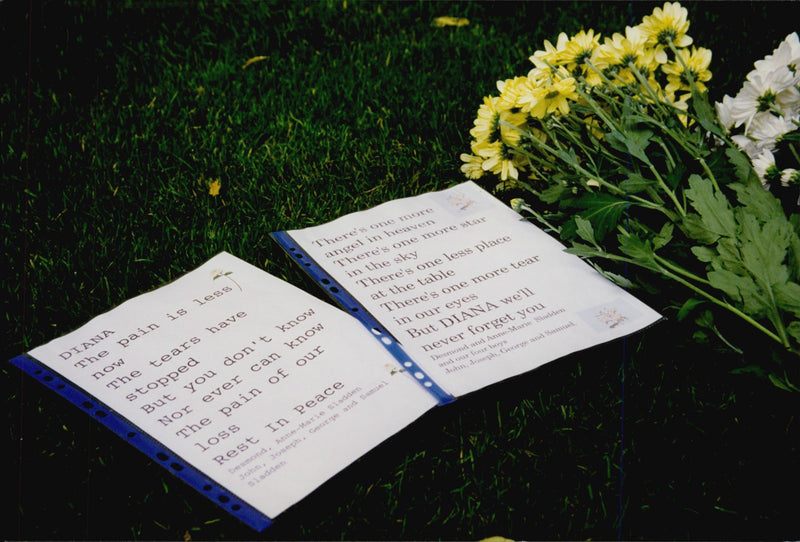 DIANA
The pain is less
now
The tears have
stopped
But you don't know
Nor ever can know
The pain of our
loss
Rest In Peace
Desmond, Anne-Marie Sladden
John, Joseph, George and Samuel
Sladden
There's one more
angel in heaven
There's one more star
in the sky
There's one less place
at the table
There's one more tear
in our eyes
But DIANA we'll
never forget you
Desmond and Anne-Marie Sladden
and our four boys
John, Joseph, George and Samuel